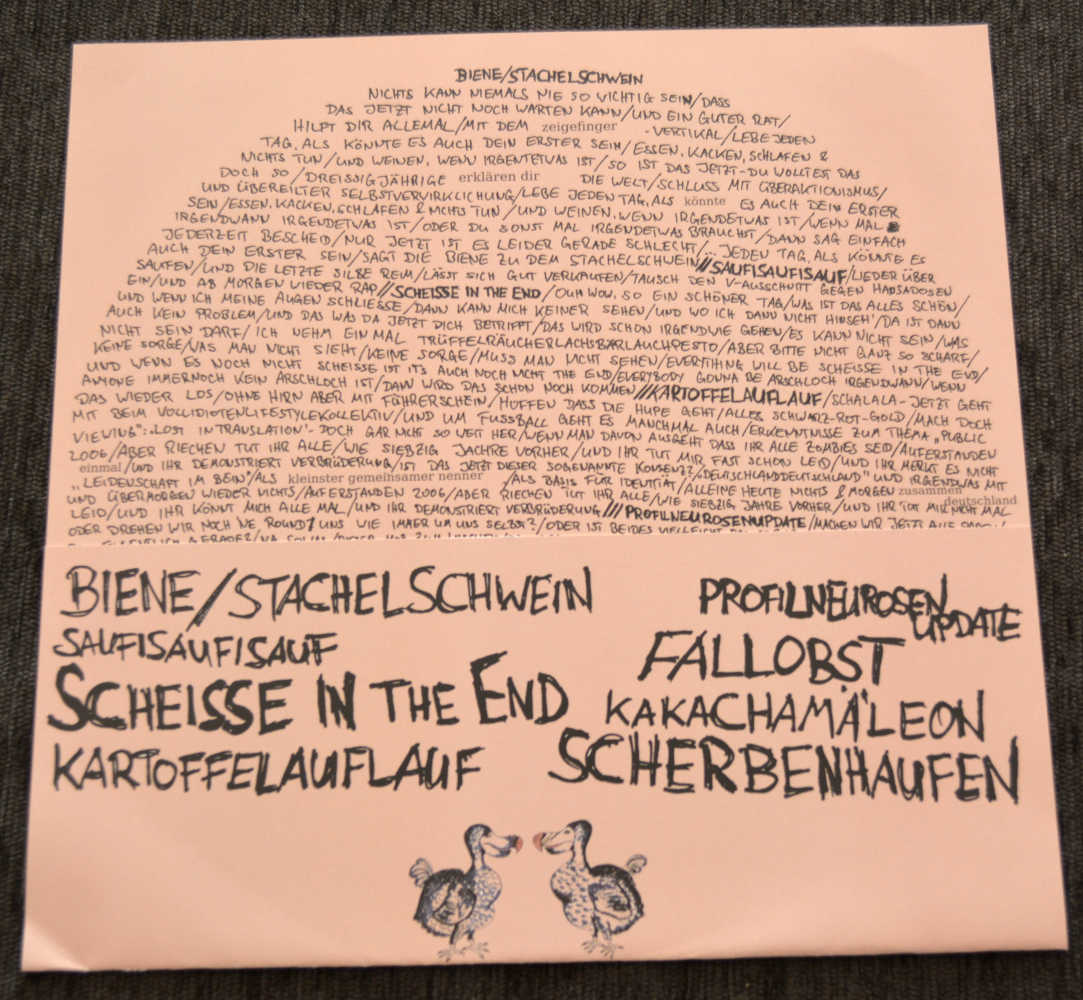 BIENE/STACHELSCHWEIN
NICHTS KANN NIEMALS NIE SO VICHTIG SEIN/DASS
DAS JETZT NICHT NOCH WARTEN KANN/UND EIN GUTER RAT/
HILFT DIR ALLEMAL/MIT DEM zeigefinger -VERTIKAL/LEBE JEDEN
TAG, ALS KÖNNTE ES AUCH DEIN ERSTER SEIN/ESSEN, KACKEN, SCHLAFEN &
NICHTS TUN/UND WEINEN, WENN IRGENTETWAS IST/SO IST DAS JETZT-DU WOLLTEST DAS
DOCH SO/DREISSIGJÄHRIGE erklären dir DIE WELT/SCHLUSS MIT ÜBERAKTIONISMUS/
UND ÜBEREILTER SELBSTVERWIRKLICHUNG/LEBE JEDEN TAG, ALS könnte ES AUCH DEIN ERSTER
SEIN/ESSEN, KACKEN, SCHLAFEN & NICHTS TUN/UND WEINEN, WENN IRGENDETWAS IST/WENN MAL
IRGENDWANN IRGENDETWAS IST/ODER DU SONST MAL IRGENDETWAS BRAUCHST/DANN SAG EINFACH
JEDERZEIT BESCHEID/NUR JETZT IST ES LEIDER GERADE SCHLECHT/... JEDEN TAG, ALS KÖNNTE ES
AUCH DEIN ERSTER SEIN/SAGT DIE BIENE ZU DEM STACHELSCHWEIN//SAUFISAUFISAUF/LIEDER ÜBER
SAUFEN/UND DIE LETZTE SILBE REIM/LÄSST SICH GUT VERKAUFEN/TAUSCH DEN V-AUSSCHNITT GEGEN HADSADOSEN
EIN/UND AB MORGEN WIEDER RAP//SCHEISSE IN THE END/OUH WOW, SO EIN SCHÖNER TAG/WAS IST DAS ALLES SCHÖN/
UND WENN ICH MEINE AUGEN SCHLIESSE/DANN KANN MICH KEINER SEHEN/UND WO ICH DANN NICHT HINSEH'/DA IST DANN
AUCH KEIN PROBLEM/UND DAS WAS DA JETZT DICH BETRIFFT/DAS WIRD SCHON IRGENDWIE GEHEN/ES KANN NICHT SEIN/WAS
NICHT SEIN DARF/ICH NEHM EINMAL TRÜFFELRÄUCHERLACHSBÄRLAUCHPESTO/ABER BITTE NICHT GANZ SO SCHARF/
KEINE SORGE/WAS MAN NICHT SIEHT/KEINE SORGE/MUSS MAN NICHT SEHEN/EVERYTHING WILL BE SCHEISSE IN THE END/
UND WENN ES NOCH NICHT SCHEISSE IST IT'S AUCH NOCH NICHT THE END/EVERYBODY GONNA BE ARSCHLOCH IRGENDWANN/WENN
ANYONE IMMERNOCH KEIN ARSCHLOCH IST/DANN WIRD DAS SCHON NOCH KOMMEN///KARTOFFELAUFLAUF/SCHALALA-JETZT GEHT
DAS WIEDER LOS/OHNE HIRN ABER MIT FÜHRERSCHEIN/HOFFEN DASS DIE HUPE GEHT/ALLES SCHWARZ-ROT-GOLD/MACH DOCH
MIT BEIM VOLLIDIOTENLIFESTYLEKOLLEKTIV/UND UM FUSSBALL GEHT ES MANCHMAL AUCH/ERKENNTNISSE ZUM THEMA „PUBLIC
VIEWING": „LOST IN TRANSLATION"- DOCH GAR NICHT SO WEIT HER/WENN MAN DAVON AUSGEHT DASS IHR ALLE ZOMBIES SEID/AUFERSTANDEN
2006/ABER RIECHEN TUT IHR ALLE/WIE SIEBZIG JAHRE VORHER/UND IHR TUT MIR FAST SCHON LEID/UND IHR MERKT ES NICHT
einmal/UND IHR DEMONSTRIERT VERBRÜDERUNG/IST DAS JETZT DIESER SOGENANNTE KONSENZ?/„DEUTSCHLANDDEUTSCHLAND" UND IRGENDWAS MIT
„LEIDENSCHAFT IM BEIN"/ALS kleinster gemeinsamer nenner /ALS BASIS FÜR IDENTITÄT/ALLEINE HEUTE NICHTS & MORGEN zusammen
UND ÜBERMORGEN WIEDER NICHTS/AUFERSTANDEN 2006/ABER RIECHEN TUT IHR ALLE/WIE SIEBZIG JAHRE VORHER/UND IHR TUT MIR NICHT MAL deutschland
LEID/UND IHR KÖNNT MICH ALLE MAL/UND IHR DEMONSTRIERT VERBRÜDERUNG///PROFILNEUROSENUPDATE/MACHEN WIR JETZT
ODER DREHEN WIR NOCH NE ROUND/UNS WIE IMMER UM UNS SELBST?/ODER IST BEIDES VIELLEICHT
BIENE/STACHELSCHWEIN
SAUFISAUFISAUF
SCHEISSE IN THE END
KARTOFFELAUFLAUF
PROFILNEUROSEN
UPDATE
FALLOBST
KAKACHAMÄLEON
SCHERBENHAUFEN